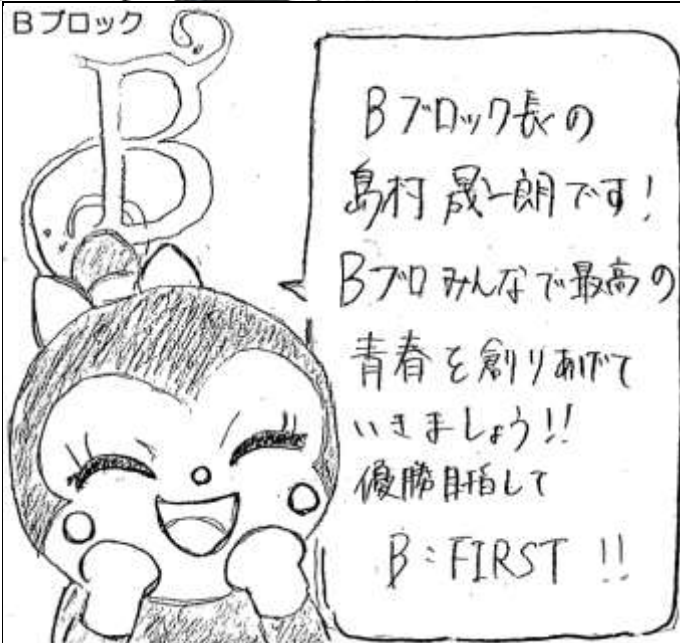 Bブロック
B
Bブロック長の
島村 晟一朗です!
Bブロみんなで最高の
青春を創りあげて
いきましょう!!
優勝目指して
B:FIRST !!